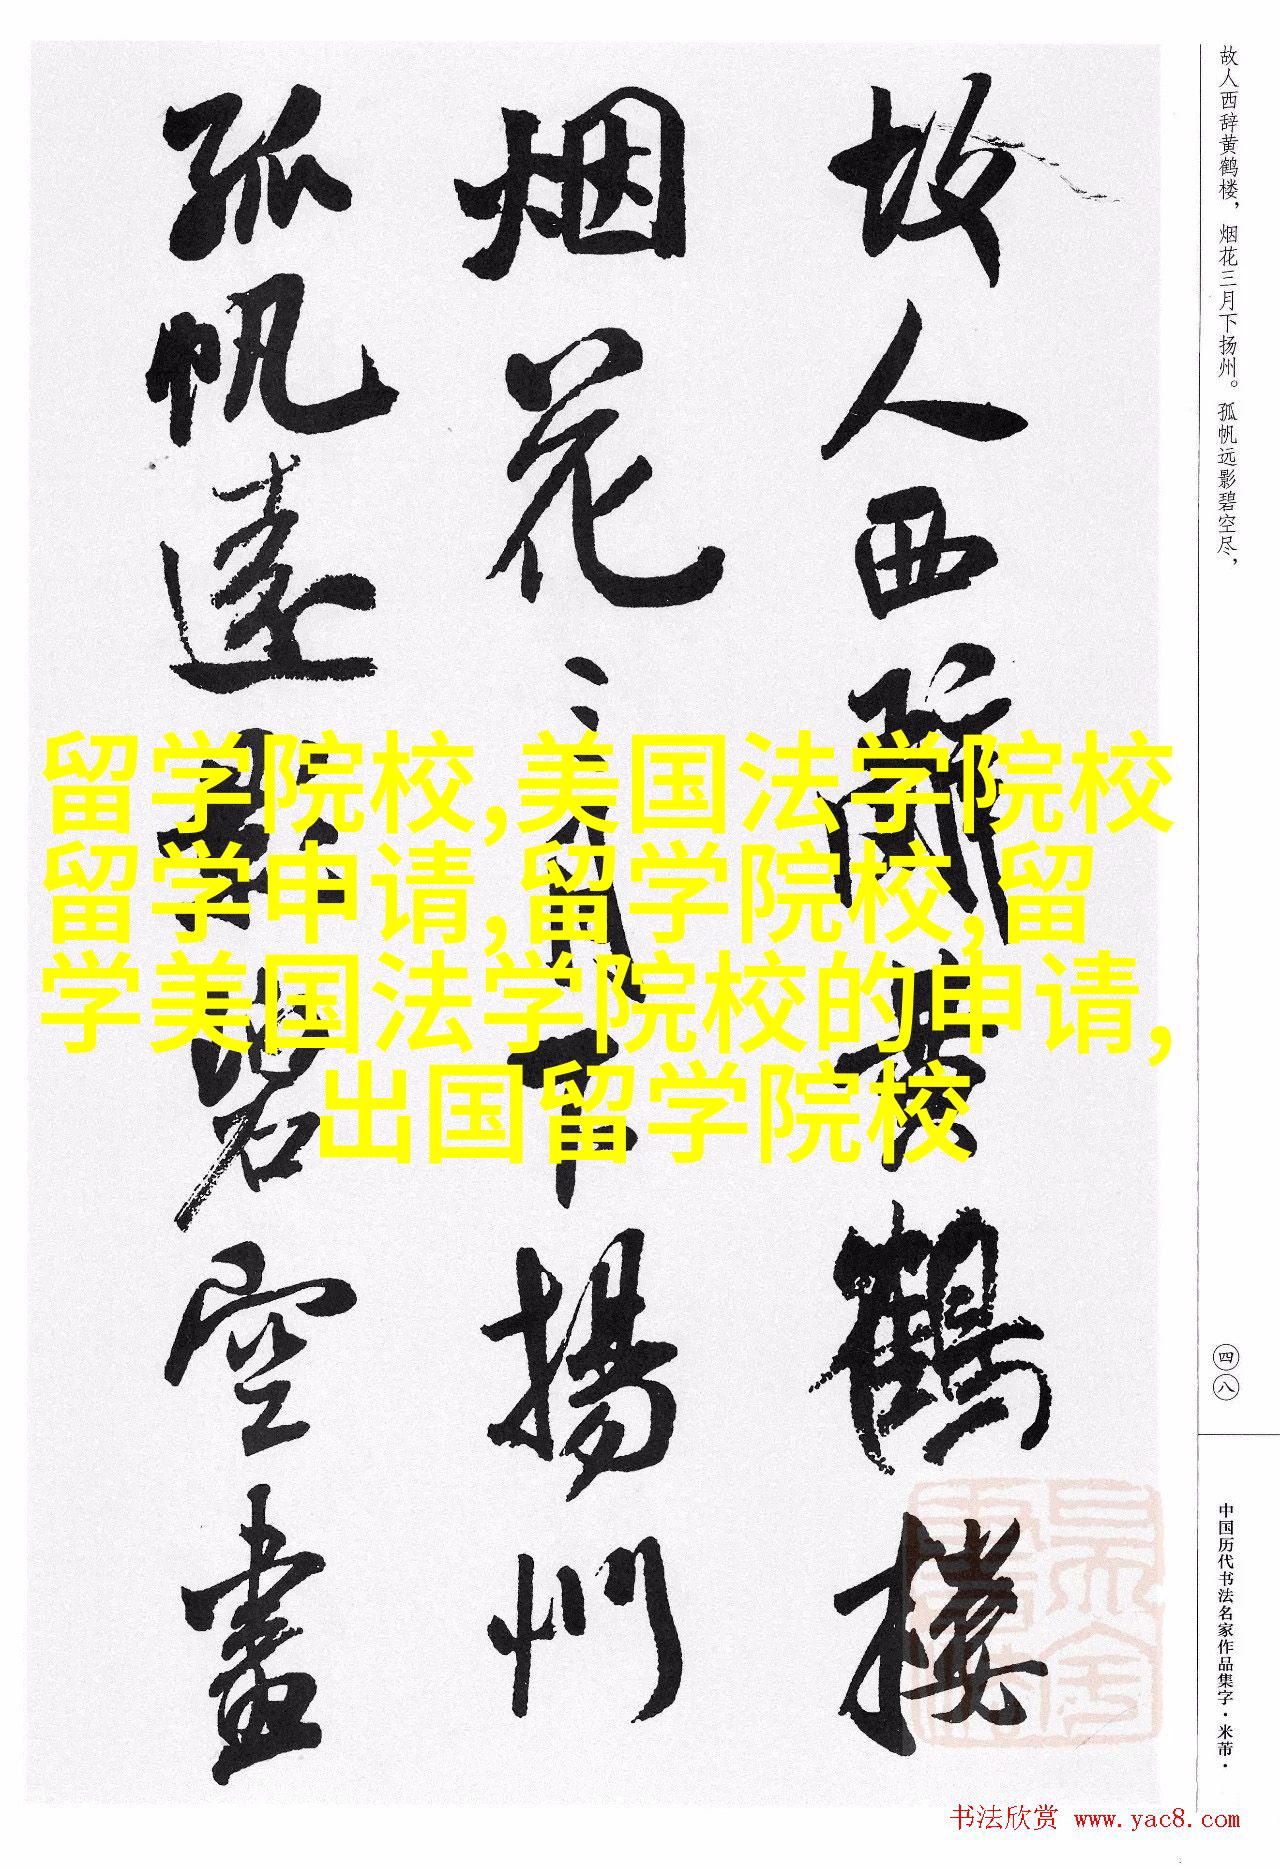 故人西辞黄鹤楼
烟花三月下扬州
孤帆远影碧空尽
故人西辞黄鹤楼，烟花三月下扬州。孤帆远影碧空尽，
四八
中国历代书法名家作品集字·米芾·
留学院校,美国法学院校
留学申请,留学院校,留
学美国法学院校的申请,
出国留学院校
书法欣赏 www.yac8.com